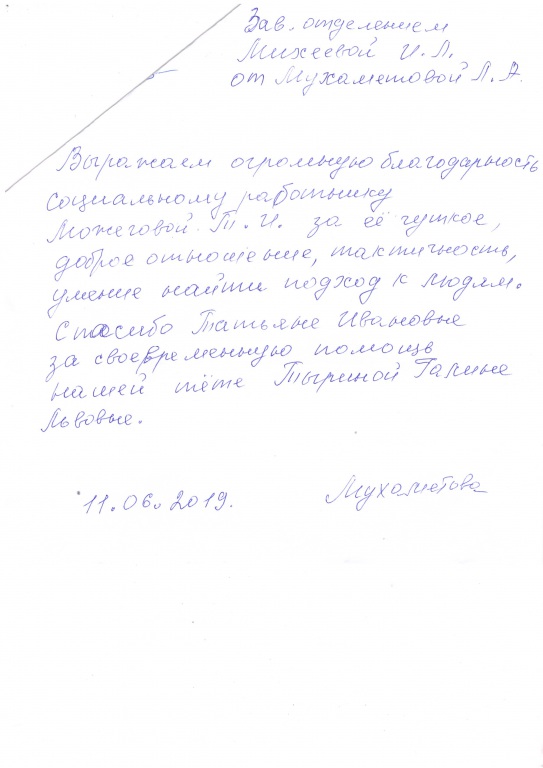 Зав. отделением
Михеевой И. Л.
от Мухаметовой Л. А.
Выражаем огромную благодарность
социальному работнику
Можеговой Т. И. за её чуткое,
доброе отношение, тактичность,
умение найти подход к людям.
Спасибо Татьяне Ивановне
за своевременную помощь
нашей тёте Тыриной Галине
Львовне.
11.06.2019. Мухаметова